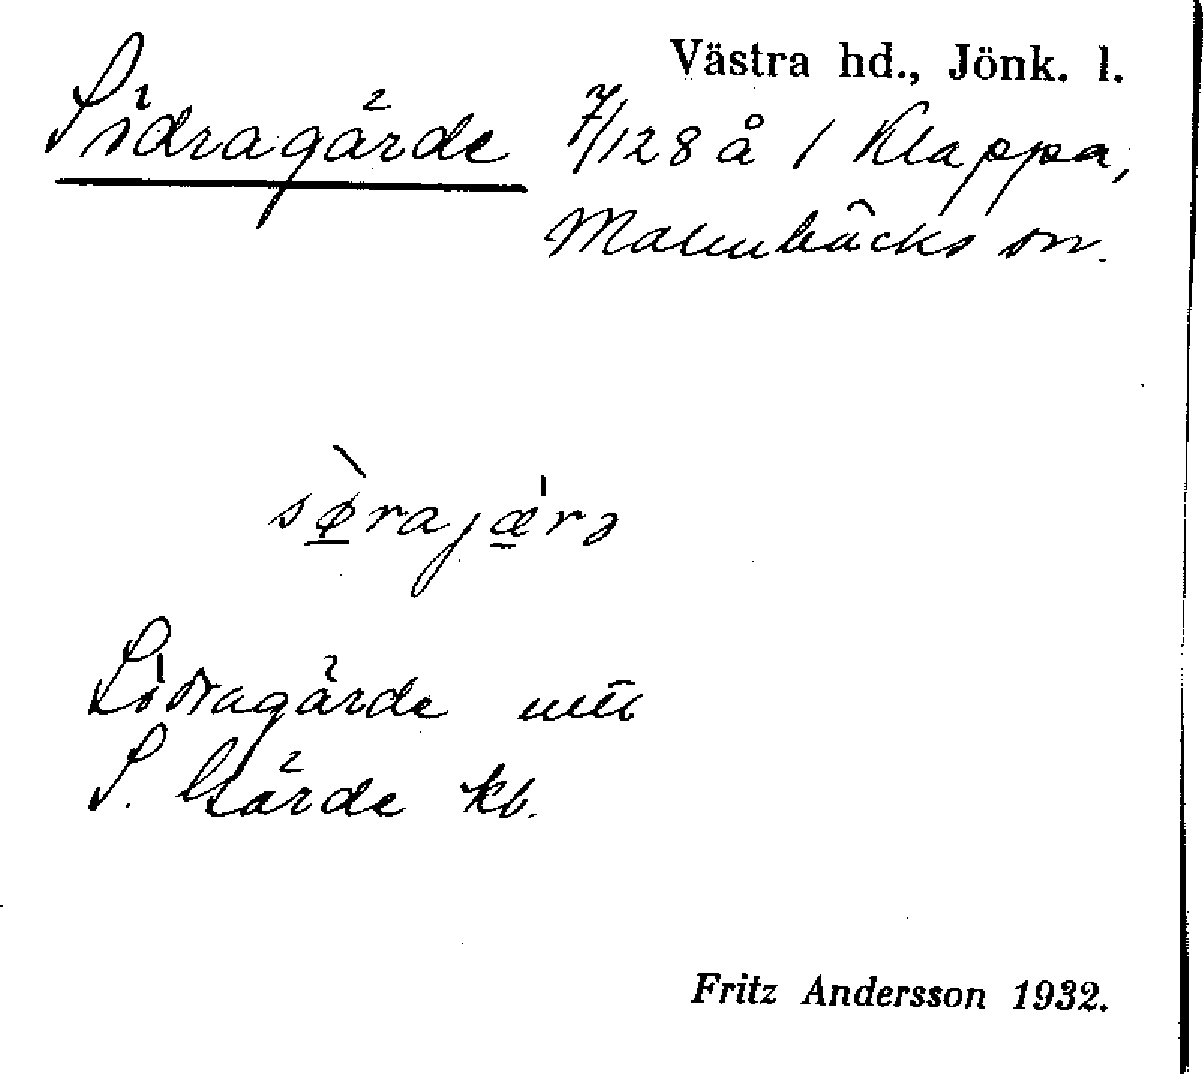 Västra hd., Jönk. l.
Södragärde 7/128 å 1 Klappa,
Malmbäcks sn.
sø̀rajæ'rə
Södragärde
S. Gärde kb.
Fritz Andersson 1932.